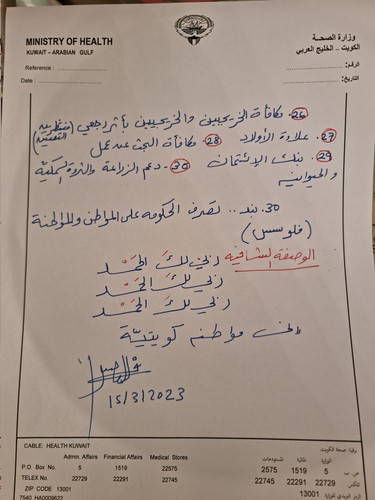 MINISTRY OF HEALTH
KUWAIT – ARABIAN GULF
Reference :
Date :
وزارة الصحــة
الكويت – الخليج العربي
الرقم:
التاريخ:
26. مكافأة الخريجين والخريجيين بأثر رجعي
27. علاوة الأولاد 28. مكافأة البحث عن عمل
29. بنك الإئتمان 30- دعم الزراعة والثروة السمكية
والحيوانية
30. بند.. تصرف الحكومه على المواطن والمواطنة
(فلوسس)
الوصفة الشافية ربي لك الحمد
ربي لك الحمد
ربي لك الحمد
مواطنه كويتية
15/3/2023
CABLE: HEALTH KUWAIT
Admin. Affairs Financial Affairs Medical Stores
P.O. Box No. 5 1519 22575
TELEX No. 22729 22291 22745
ZIP CODE 13001
7540 HA0009622
برقيا: صحة الكويت
2575 1519 5 ص. ب
22745 22291 22729
13001